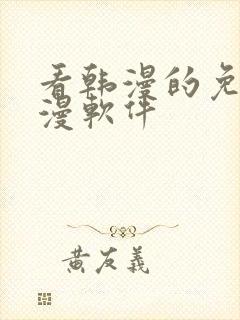 看韩漫的免
漫软件
黄友义